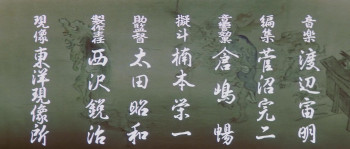 音楽 渡辺宙明
編集 菅沼完二
美粧 倉嶋暢
擬斗 楠本栄一
助監督 太田昭和
製作主任 西沢鋭治
現像 東洋現像所